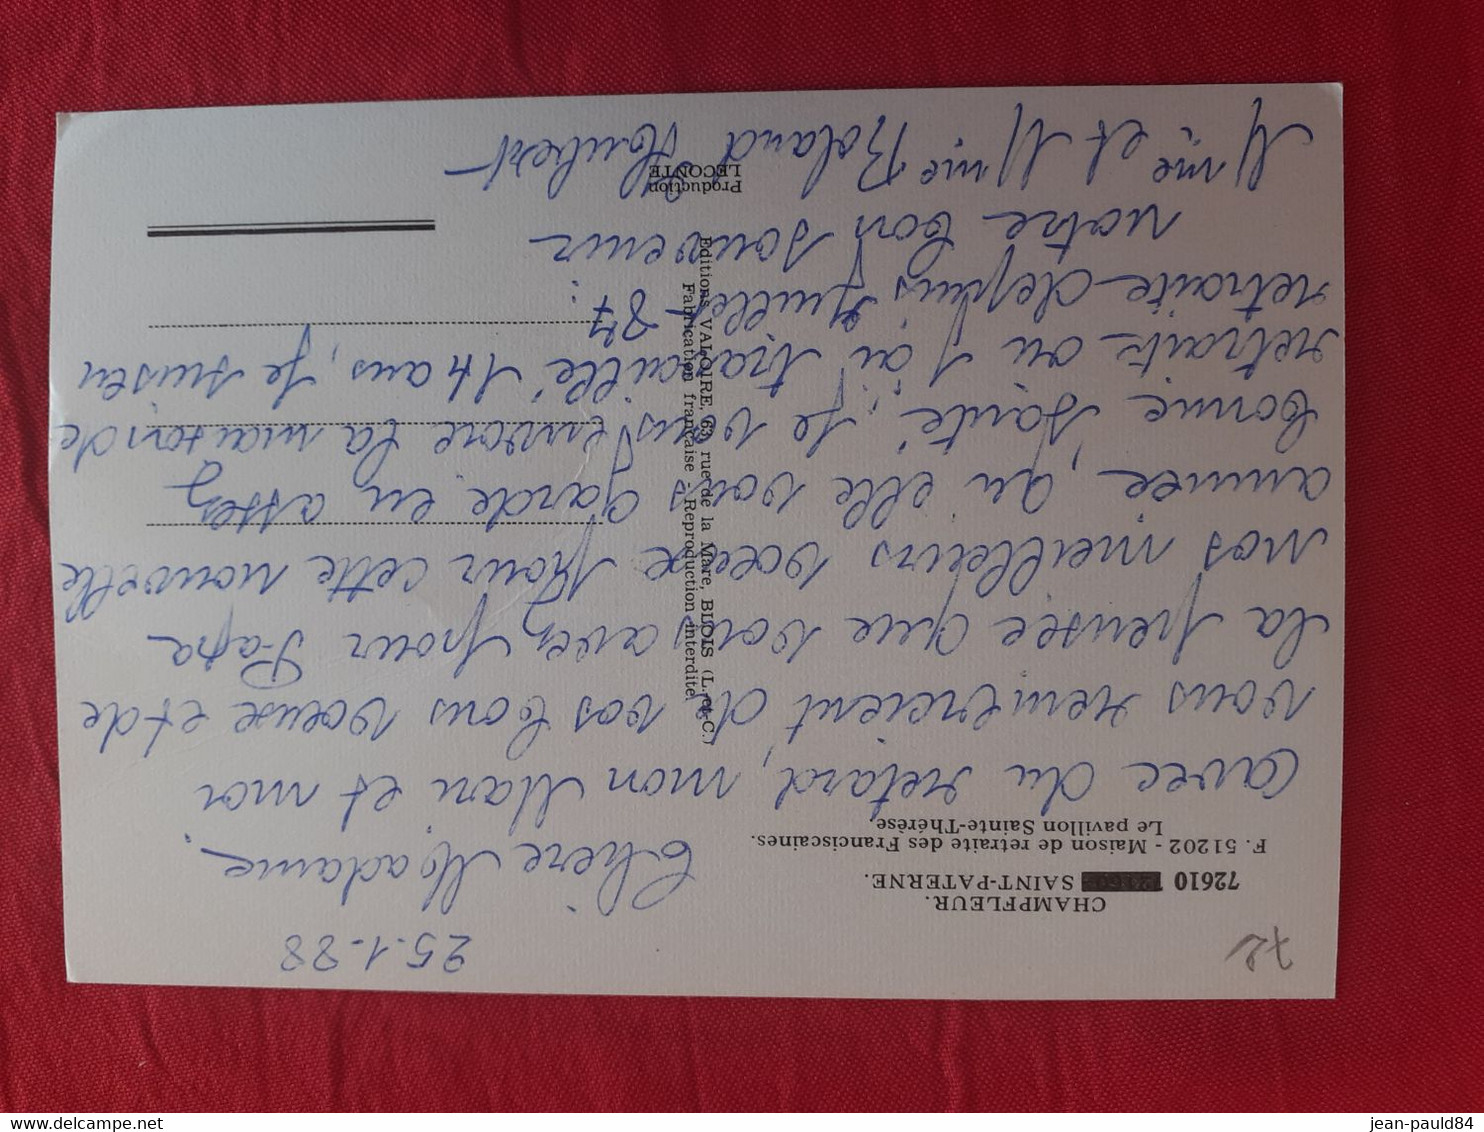 72
25.1-88
CHAMPFLEUR.
72610 SAINT-PATERNE.
F. 51202 - Maison de retraite des Franciscaines.
Le pavillon Sainte-Thérèse.
Chère Madame.
avec du retard, mon Mari et moi
vous remercient, de vos bons voeux et de
la pensée que vous avez pour Papa
nos meilleurs voeux pour cette nouvelle
année, qu'elle vous garde en assez
bonne santé, je vous envore la maison de
retraite ou j'ai travaillé 14 ans, je suis en
retraite depuis Juillet 87.
notre bon souvenir
Mme et Mme Roland Houbert
Editions VALOIRE, 63, rue de la Mare, BLOIS (L.-et-C.)
Fabrication française - Reproduction interdite.
Production
LECONTE
jean-pauld84
delcampe.net